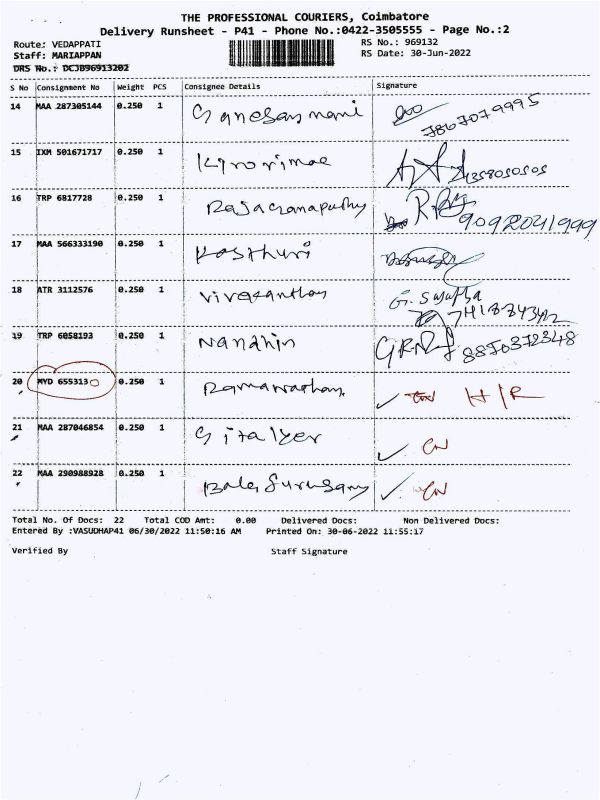 THE PROFESSIONAL COURIERS, Coimbatore
Delivery Runsheet - P41 - Phone No.:0422-3505555 - Page No.:2
Route: VEDAPPATI RS No.: 969132
Staff: MARIAPPAN RS Date: 30-Jun-2022
DRS No.: DCJB96913202
S No Consignment No Weight PCS Consignee Details Signature
14 MAA 287305144 0.250 1 7867079995
15 IXM 501671717 0.250 1
16 TRP 6817728 0.250 1 9092041999
17 MAA 566333190 0.250 1 Kasthuri
18 ATR 3112576 0.250 1 G. Sujatha
19 TRP 6058193 0.250 1 Nandhin 8870372348
20 MYD 6553130 0.250 1 H/R
21 MAA 287046854 0.250 1
22 MAA 290988928 0.250 1
Total No. Of Docs: 22 Total COD Amt: 0.00 Delivered Docs: Non Delivered Docs:
Entered By :VASUDHAP41 06/30/2022 11:50:16 AM Printed On: 30-06-2022 11:55:17
Verified By Staff Signature